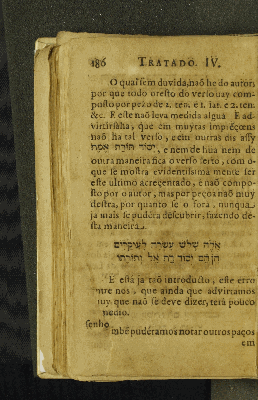 186 TRATADO. IV.
O qual sem duvida, naõ he do autor,
por que todo o resto do verso vay com-
posto por pezo de 2. ten. e 1. iat. e 2. ten.
&c. E este naõ leva medida algũa E ad-
virtirſaha, que em muytas impreçoens
naõ ha tal verso, e em outras dis assy
יסוד תורת אמת, e nem de hua nem de
outra maneira fica o verso serto, com o-
que se mostra evidentissima mente ser
este ultimo acrecentado, e naõ compo-
sto por o autor, mas por peços naõ muy
destra, por quanto se o fora, nunqua
ja mais se pudera descubrir, fazendo de-
sta maneira.
אלה שלש עשרה לעיקרים
הן הם יסוד דת אל ותורתו
E esta ja taõ introducto, este erro
ntre nos, que ainda que advirtamos
uy, que naõ se deve dizer, terá pouco
medio.
senho
mbẽ pudéramos notar outros paços
em